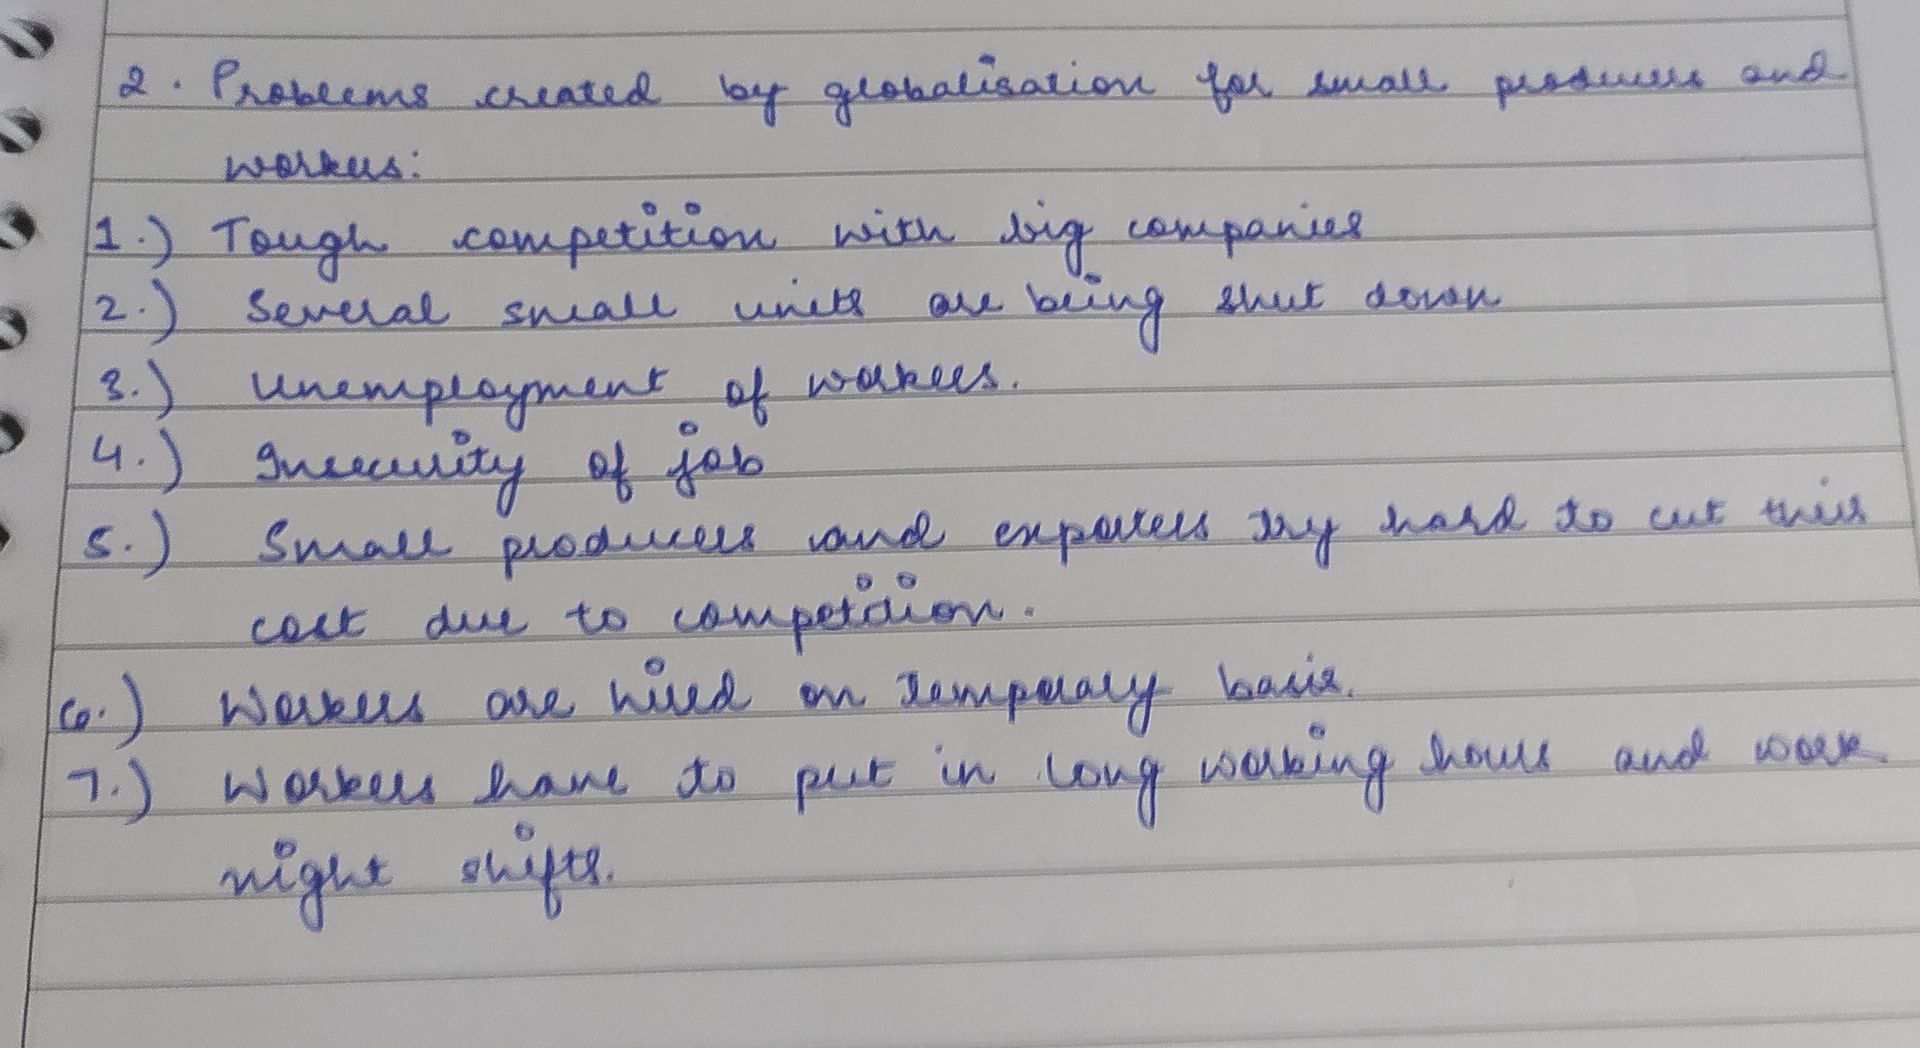 2. Problems created by globalisation for small producers and
workers:
1.) Tough competition with big companies
2.) Several small units are being shut down
3.) Unemployment of workers.
4.) Insecurity of job
5.) Small producers and exporters try hard to cut their
cost due to competition.
6.) Workers are hired on temporary basis.
7.) Workers have to put in long working hours and work
night shifts.